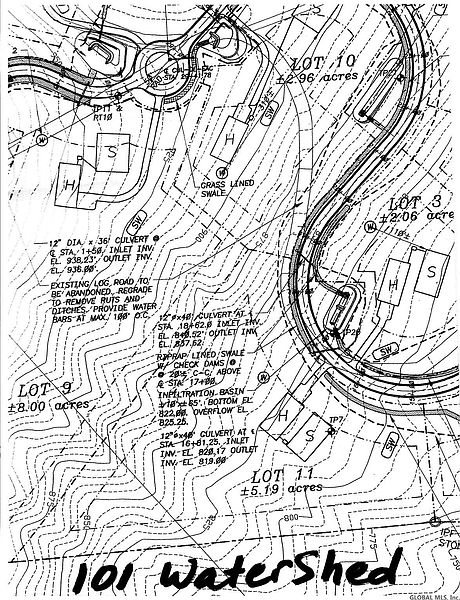 LOT 10
±2.96 acres
TP11 &
RT10
H
S
H
W
SW
GRASS LINED
SWALE
LOT 3
±2.06 acres
W
S
H
SW
12" DIA. x 36' CULVERT @
℄ STA. 1+50, INLET INV.
EL. 938.23' OUTLET INV.
EL. 936.00'.
EXISTING LOG ROAD TO
BE ABANDONED. REGRADE
TO REMOVE RUTS AND
DITCHES. PROVIDE WATER
BARS AT MAX. 100' O.C.
12"ø x40' CULVERT AT ℄
STA. 18+62.0 INLET INV.
EL. 840.52' OUTLET INV.
EL. 837.62.
RIPRAP LINED SWALE
W/ CHECK DAMS @
20'± C-C. ABOVE
℄ STA. 17+00.
INFILTRATION BASIN
±10'x±65'. BOTTOM EL.
822.00. OVERFLOW EL.
825.25.
12"ø x40' CULVERT AT ℄
STA. 16+81.25. INLET
INV. EL. 820.17 OUTLET
INV. EL. 819.00'
LOT 9
±8.00 acres
TP26
W
SW
H
S
TP7
SW
LOT 11
±5.19 acres
900
875
850
825
800
775
IPF
101 WaterShed
GLOBAL MLS, Inc.